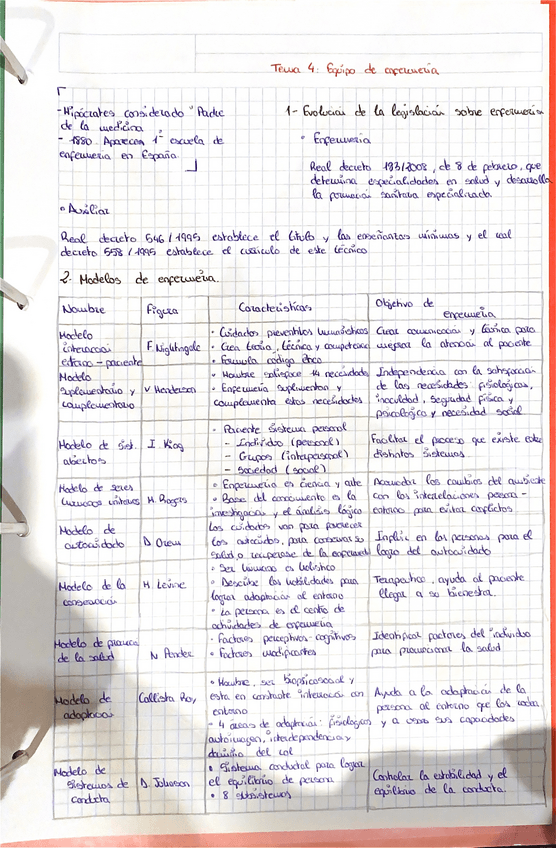 Tema 4: Equipo de enfermería
- Hipócrates considerado "Padre
de la medicina
- 1880. Aparecen 1ª escuela de
enfermería en España
1- Evolución de la legislación sobre enfermería
• Enfermería
Real decreto 183/2008, de 8 de febrero, que
determina especialidades en salud y desarrolla
la formación sanitaria especializada.
• Auxiliar
Real decreto 546/1995 establece el título y las enseñanzas mínimas y el real
decreto 558/1995 establece el currículo de este técnico
2. Modelos de enfermería.
Nombre
Figura
Características
Objetivo de
enfermería
Modelo
interacción
enfermo - paciente
F. Nightingale
• Cuidados preventivos humanísticos
• Crea teoría, técnica y competencia
• Formula código ético
Crear comunicación y técnica para
mejorar la atención al paciente
Modelo
suplementario y
complementario
V. Henderson
• Hombre satisface 14 necesidades
• Enfermería suplementa y
complementa estas necesidades
Independencia con la satisfacción
de las necesidades: fisiológicas,
movilidad, seguridad física y
psicológica y necesidad social
Modelo de sist.
abiertos
I. King
• Paciente sistema personal
- Individuo (personal)
- Grupos (interpersonal)
- Sociedad (social)
Facilitar el proceso que existe entre
distintos sistemas.
Modelo de seres
humanos unitarios
M. Rogers
• Enfermería es ciencia y arte
• Base del conocimiento es la
investigación y el análisis lógico
con las interrelaciones persona -
entorno para evitar conflictos
Modelo de
autocuidado
D. Orem
Los cuidados van para favorecer
los autocuidados, para conservar su
salud o recuperarse de la enfermedad
Implicar en las personas para el
logro del autocuidado
Modelo de la
conservación
M. Levine
• Ser humano es holístico
• Describe las habilidades para
lograr adaptación al entorno
• La persona es el centro de
actividades de enfermería
Terapéutico, ayuda al paciente
llegar a su bienestar.
Modelo de promoc.
de la salud
N. Pender
• Factores perceptivos-cognitivos
• Factores modificantes
Identificar factores del individuo
para promocionar la salud
Modelo de
adaptación
Callista Roy
• Hombre, ser biopsicosocial y
esta en constante interacción con
entorno
- 4 áreas de adaptación: fisiológica
autoimagen, interdependencia y
dominio del rol
Ayuda a la adaptación de la
persona al entorno que los rodea
y a usar sus capacidades
Modelo de
sistemas de
conducta
D. Johnson
• Sistema conductal para lograr
el equilibrio de persona
• 8 subsistemas
Controlar la estabilidad y el
equilibrio de la conducta.